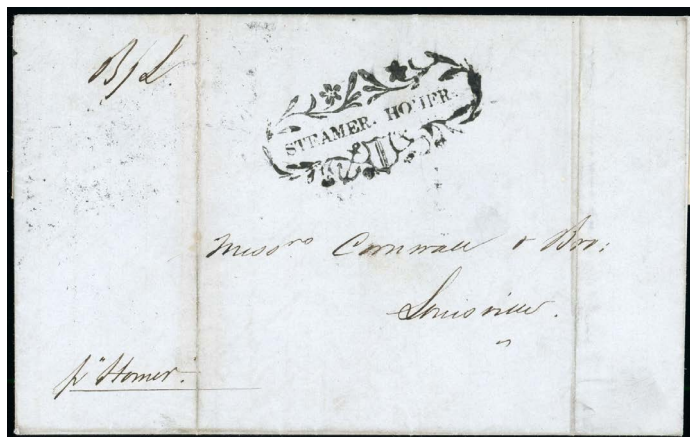 B/L.
STEAMER. HOMER.
Messrs Cornwall & Bro:
Louisville.
pr "Homer".